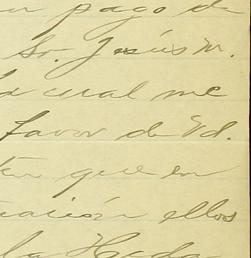 pago de
Sr. Jesús M.
la cual me
favor de Ud.
que en
ellos
la Hada